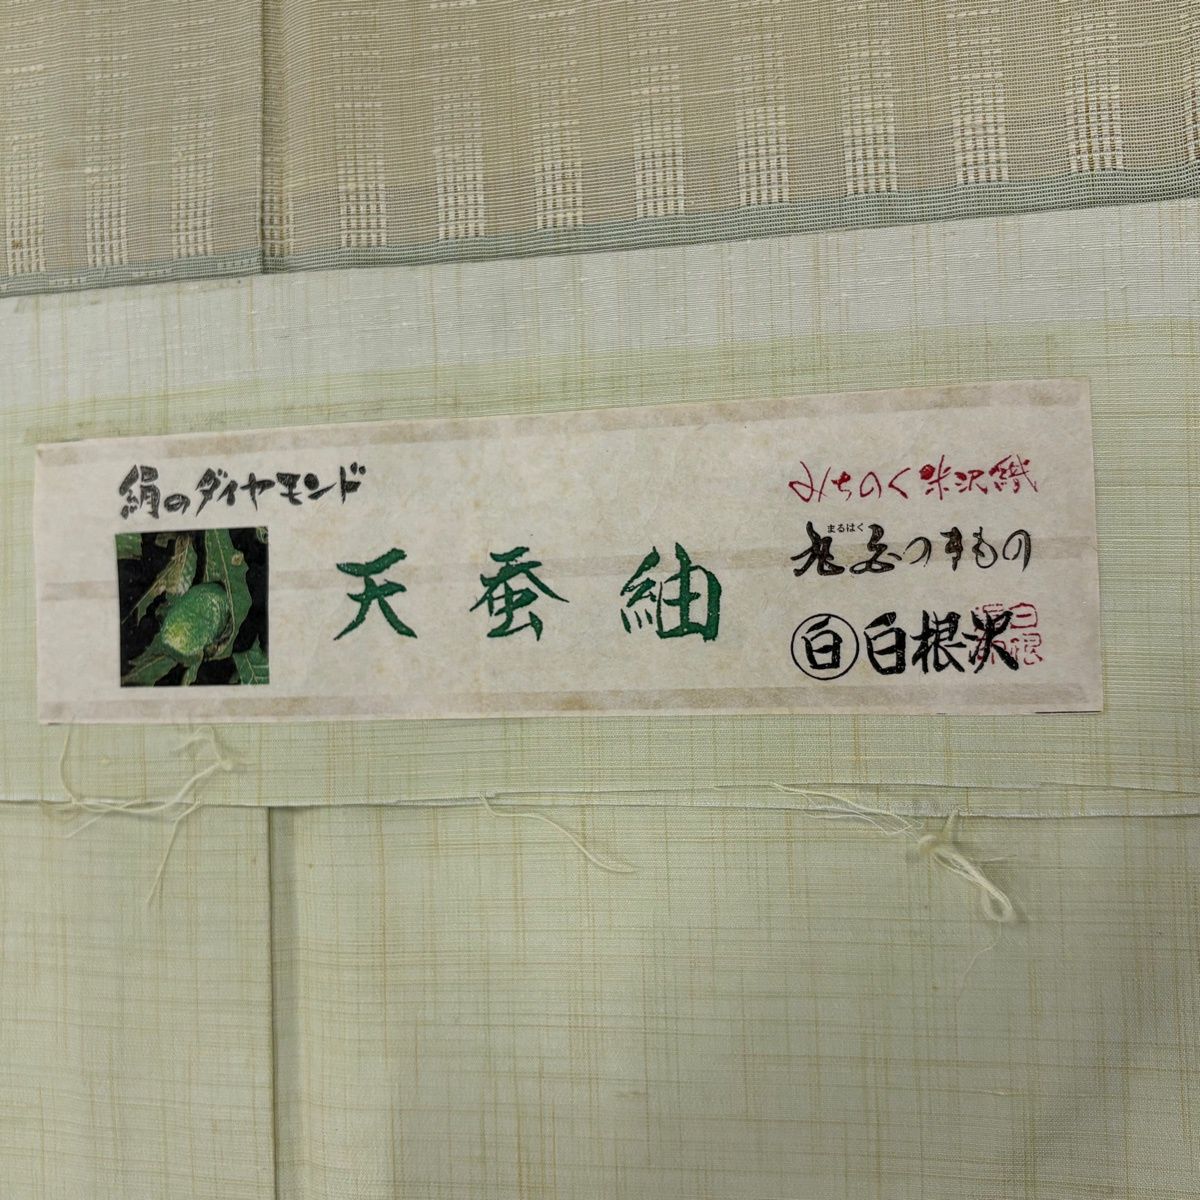 絹のダイヤモンド
天蚕紬
みちのく米沢織
まるはく
のきもの
白 白根沢